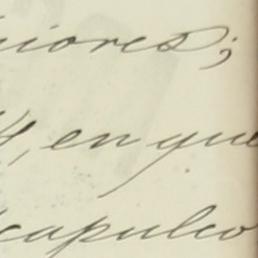 iores;
, en que
capulco